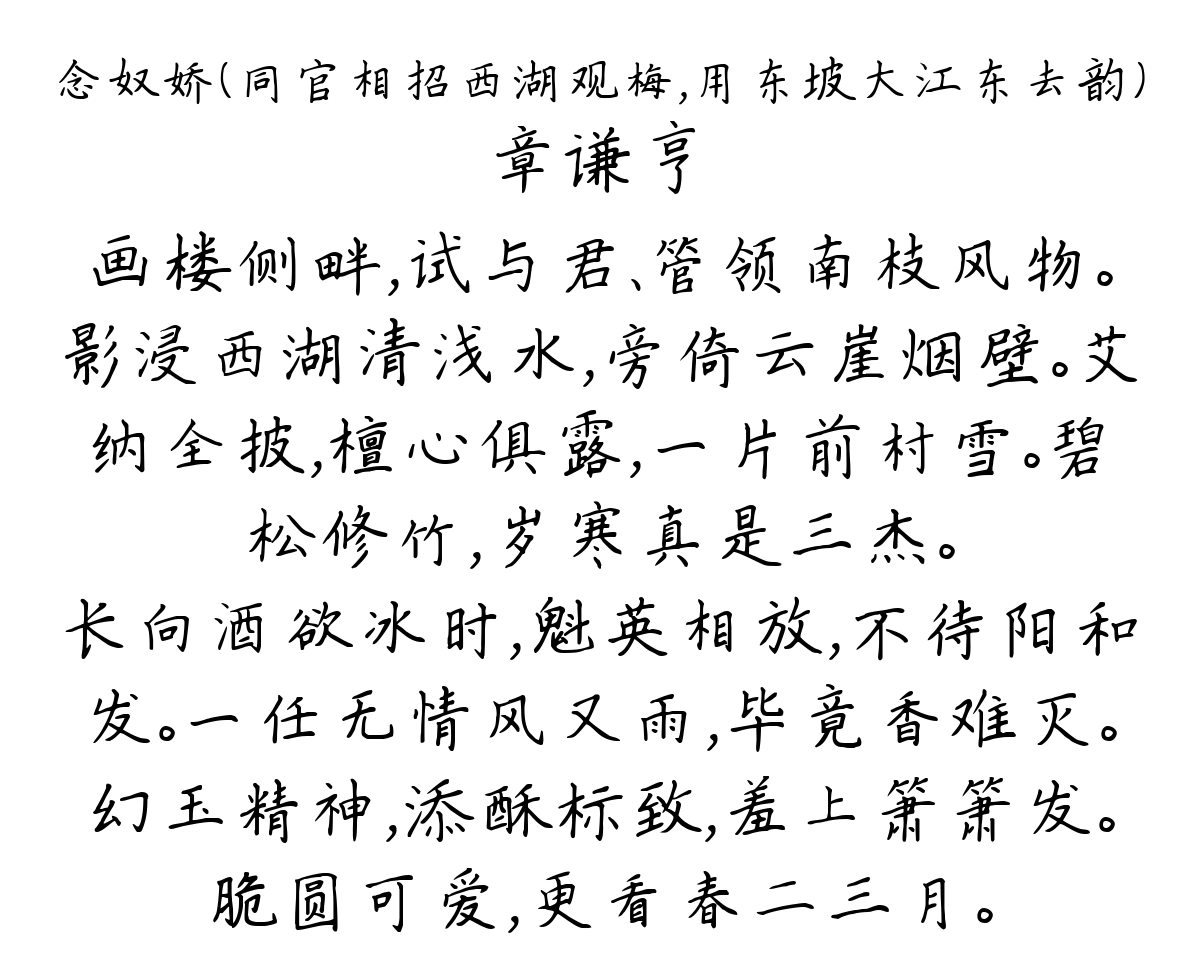 念奴娇(同官相招西湖观梅,用东坡大江东去韵)
章谦亨
画楼侧畔,试与君、管领南枝风物。
影浸西湖清浅水,旁倚云崖烟壁。艾
纳全披,檀心俱露,一片前村雪。碧
松修竹,岁寒真是三杰。
长向酒欲冰时,魁英相放,不待阳和
发。一任无情风又雨,毕竟香难灭。
幻玉精神,添酥标致,羞上箫箫发。
脆圆可爱,更看春二三月。